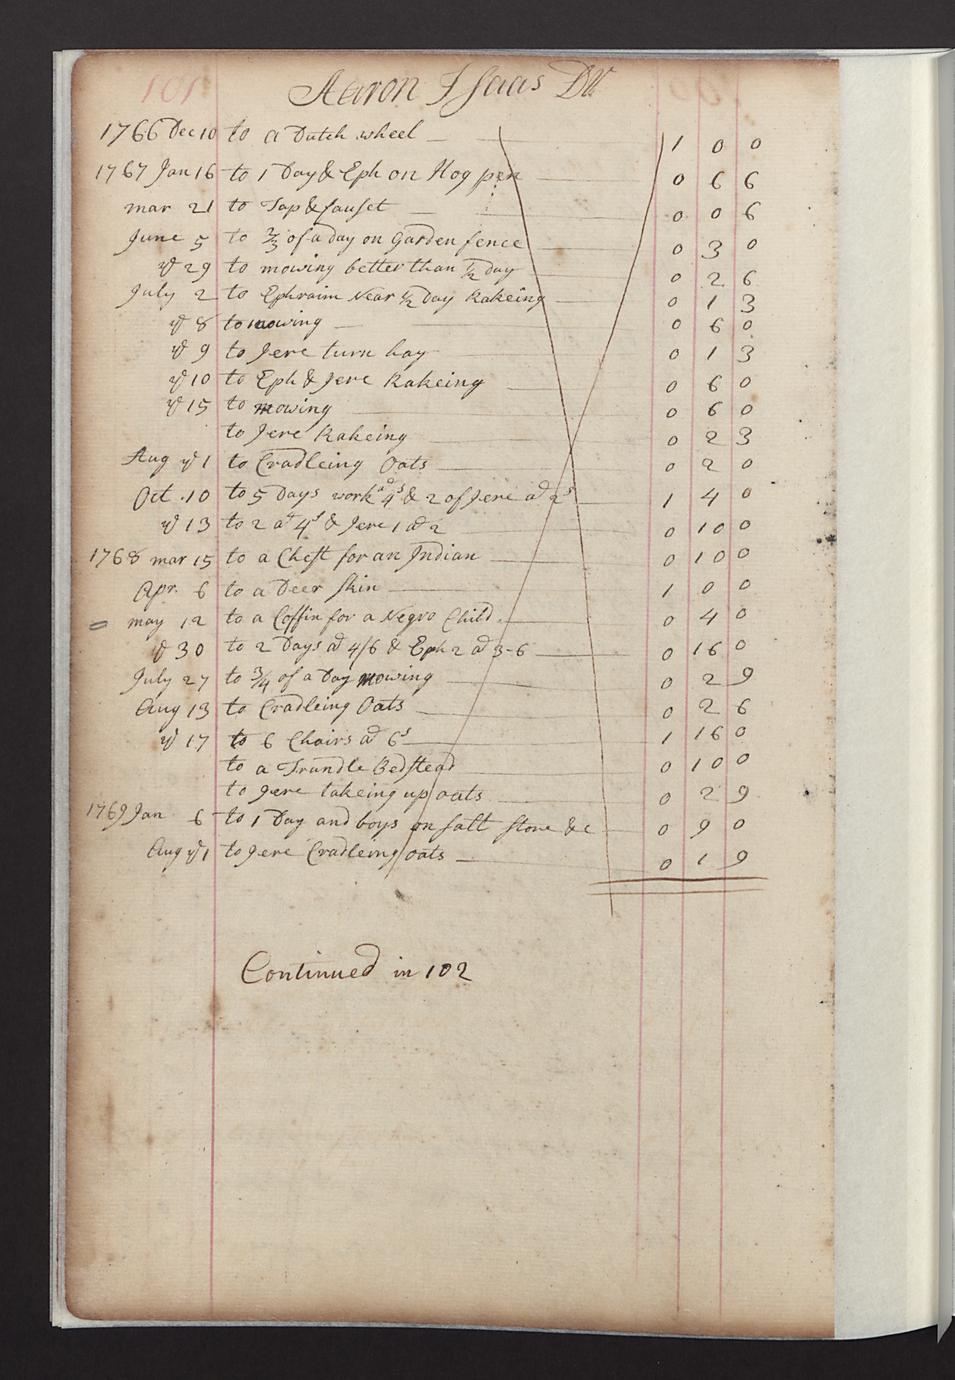 101
Aaron Isaas Dr.
1766 Dec 10 to a Dutch wheel 1 0 0
1767 Jan 16 to 1 Day & Eph on Hog pen 0 6 6
mar 21 to Tap & fauset 0 0 6
June 5 to 2/3 of a day on Garden fence 0 3 0
ye 29 to mowing better than 1/2 day 0 2 6
July 2 to Ephraim Near 1/2 Day Rakeing 0 1 3
ye 8 to mowing 0 6 0
ye 9 to Jere turn hay 0 1 3
ye 10 to Eph & Jere Rakeing 0 6 0
ye 15 to mowing 0 6 0
to Jere Rakeing 0 2 3
Aug ye 1 to Cradleing Oats 0 2 0
Oct 10 to 5 Days work ad 4s & 2 of Jere ad 2s 1 4 0
ye 13 to 2 ad 4s & Jere 1 ad 2 0 10 0
1768 mar 15 to a Chest for an Indian 0 10 0
Apr. 6 to a Deer Skin 1 0 0
= may 12 to a Coffin for a Negro Child 0 4 0
ye 30 to 2 Days ad 4/6 & Eph 2 ad 3-6 0 16 0
July 27 to 3/4 of a Day mowing 0 2 9
Aug 13 to Cradleing Oats 0 2 6
ye 17 to 6 Chairs ad 6s 1 16 0
to a Trundle Bedstead 0 10 0
to Jere takeing up oats 0 2 9
1769 Jan 6 to 1 Day and boys on salt store &c 0 9 0
Aug ye 1 to Jere Cradleing oats 0 1 9
Continued in 102